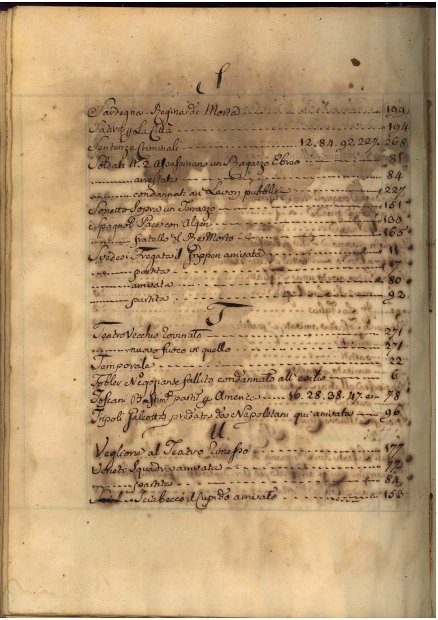 S
Sardegna Regina di Morta ---- 199
Satire p la Città ---- 194
Sentenze Criminali ---- 12. 84. 92. 227. 268
Soldati N. 2 Assassinano un Ragazzo Ebreo ---- 81
---- arrestato ---- 84
---- condannati ai Lavori pubblici ---- 227
Sonetto sopra un Terrazzo ---- 151
Spagnoli Pace con Algeri ----
---- fratello del Re Morto ---- 165
Svedesi Fregata arrivata ---- 11
---- partita ---- 17
---- arrivata ---- 80
---- partita ---- 92
T
Teatro Vecchio rovinato ---- 271
---- nuovo fuoco in quello ---- 271
Temporale ---- 22
Tobler Negoziante fallito condannato all'esilio ---- 6
Toscani partiti p America ---- 16. 28. 38. 47. e 78
Tripoli Falcotto predato da Napoletani qui arrivato ---- 96
U
Veglione al Teatro ---- 177
Veneti Squadra arrivata ---- 77
---- partita ---- 84
---- Sciabecco il Cupido arrivato ---- 153